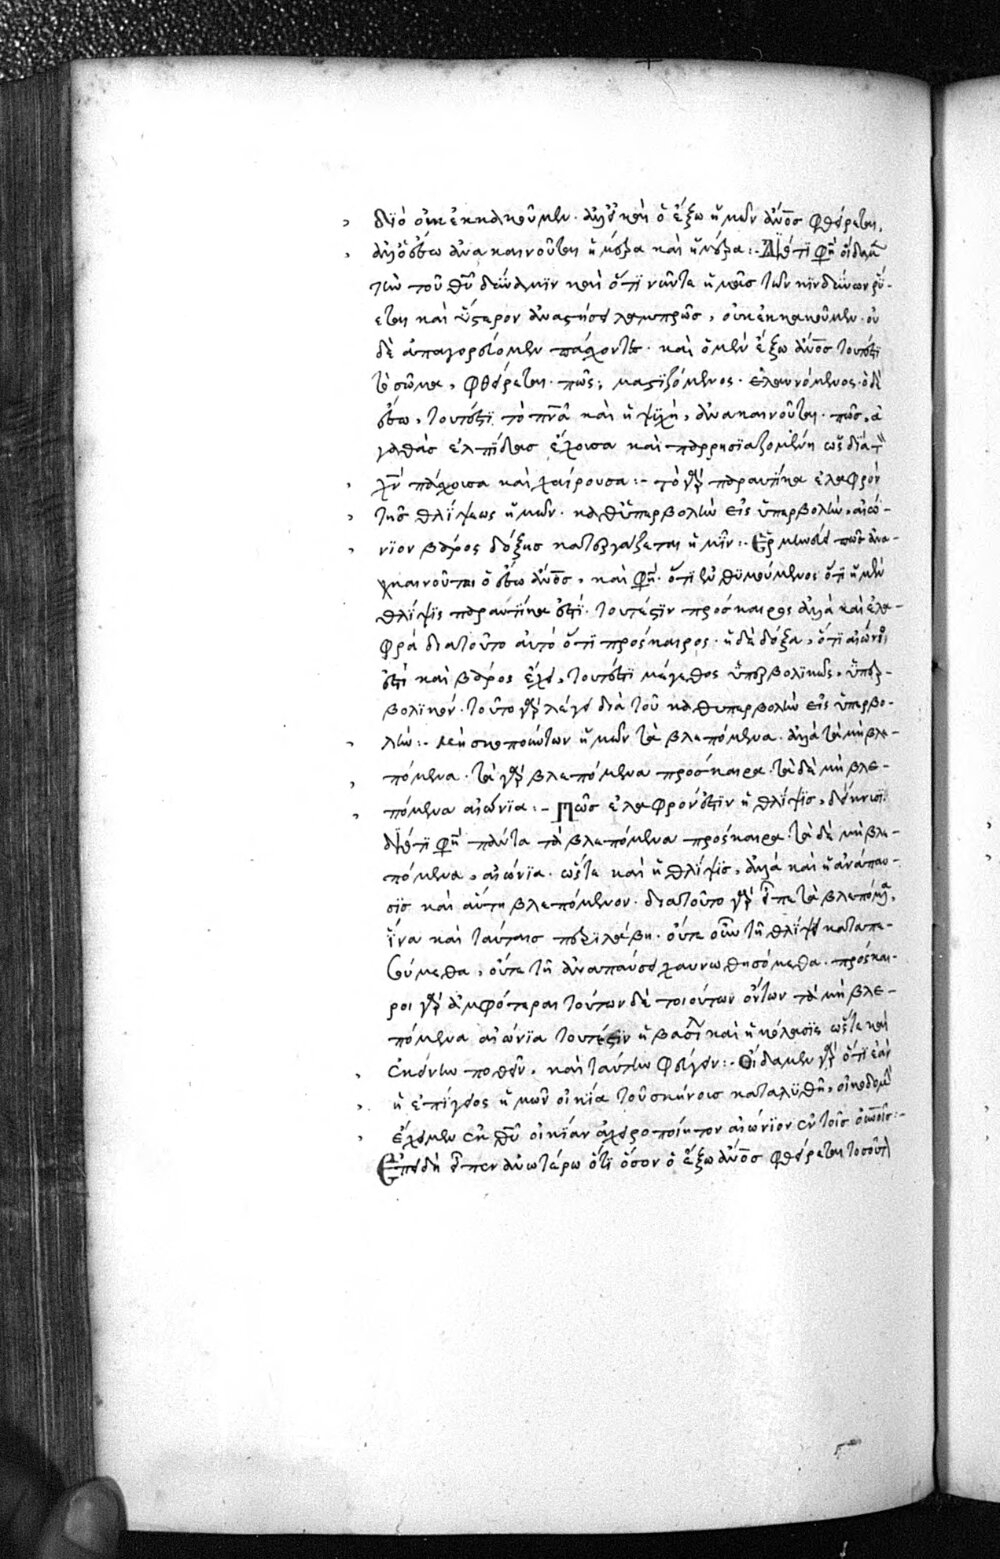 διὸ οὐκ ἐκκακοῦμεν· ἀλλ' εἰ καὶ ὁ ἔξω ἡμῶν ἄνος φθείρεται,
ἀλλ' ὁ ἔσω ἀνακαινοῦται ἡμέρα καὶ ἡμέρα:- Διότι φη οἴδαμεν
τὴν τοῦ θυ δύναμιν καὶ ὅτι πάντα ἡμᾶς τῶν κινδύνων ῥύ-
εται καὶ ὕστερον ἀναστήσει λαμπρῶς, οὐκ ἐκκακοῦμεν· οὐ
δὲ ἀπαγορεύομεν πάσχοντες· καὶ ὁ μὲν ἔξω ἄνος τουτέστι
τὸ σῶμα, φθείρεται· πῶς; μαστιζόμενος· ἐλαυνόμενος· ὁ δὲ
ἔσω, τουτέστι τὸ πνα καὶ ἡ ψυχὴ, ἀνακαινοῦται· πῶς, ἀ
γαθὰς ἐλπίδας ἔχουσα καὶ παρρησιαζομένη ὡς διὰ τὸν
χν πάσχουσα καὶ χαίρουσα:- τὸ γὰρ παραυτίκα ἐλαφρὸν
τῆς θλίψεως ἡμῶν· καθ' ὑπερβολὴν εἰς ὑπερβολὴν, αἰώ-
νιον βάρος δόξης κατεργάζεται ἡμῖν:- Ἑρμηνεύει πῶς ἀνα-
καινοῦται ὁ ἔσω ἄνος, καὶ φη· ὅτι ἐνθυμούμενος ὅτι ἡ μὲν
θλίψις παραυτίκα ἐστί· τουτέστιν πρόσκαιρος ἀλλὰ καὶ ἐλα-
φρὰ διατοῦτο αὐτὸ ὅτι πρόσκαιρος· ἡ δὲ δόξα, ὅτι αἰώνιός
ἐστι καὶ βάρος ἔχει, τουτέστι μέγεθος ὑπερβολικῶς, ὑπερ-
βολικόν· τοῦτο γὰρ λέγει διὰ τοῦ καθυπερβολὴν εἰς ὑπερβο-
λήν:- Μὴ σκοπούντων ἡμῶν τὰ βλεπόμενα· ἀλλὰ τὰ μὴ βλε-
πόμενα· τὰ γὰρ βλεπόμενα πρόσκαιρα· τὰ δὲ μὴ βλε-
πόμενα αἰώνια:- Πῶς ἐλαφρόν ἐστιν ἡ θλίψις, δείκνυσι·
διότι φη πάντα τὰ βλεπόμενα πρόσκαιρα· τὰ δὲ μὴ βλε-
πόμενα, αἰώνια· ὥστε καὶ ἡ θλίψις, ἀλλὰ καὶ ἡ ἀνάπαυ-
σις καὶ αὕτη βλεπόμενον· διατοῦτο γὰρ εἶπε τὰ βλεπόμενα,
ἵνα καὶ ταύτας περιλάβη· οὔτε οὖν τῆ θλίψει καταπε-
σούμεθα, οὔτε τῆ ἀναπαύσει χαυνωθησόμεθα· πρόσκαι-
ροι γὰρ ἀμφότεραι τούτων δὲ τοιούτων ὄντων τὰ μὴ βλε-
πόμενα αἰώνια τουτέστιν ἡ βασιλεία καὶ ἡ κόλασις ὥστε καὶ
ἐκείνην ποθεῖν, καὶ ταύτην φεύγειν:- Οἴδαμεν γὰρ ὅτι ἐὰν
ἡ ἐπίγειος ἡμῶν οἰκία τοῦ σκήνους καταλυθῆ, οἰκοδομὴν
ἔχομεν ἐκ θυ οἰκίαν ἀχειροποίητον αἰώνιον ἐν τοῖς ουνοις:-
Ἐπειδὴ εἶπεν ἀνωτέρω ὅτι ὅσον ὁ ἔξω ἄνος φθείρεται τοσοῦτον